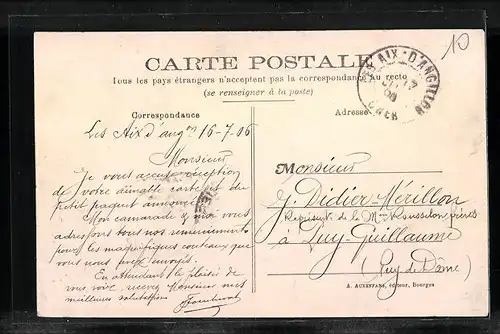 CARTE POSTALE
Tous les pays étrangers n'acceptent pas la correspondance au recto
(se renseigner à la poste)
LES AIX-D'ANGILLON
CHER
Correspondance
Adresse
Les Aix d'ang^on 16-7-06
Monsieur
Je vous accuse réception
de votre aimable carte et du
petit paquet annoncé.
Mon camarade & moi vous
adressons tous nos remerciements
pour les magnifiques couteaux que
vous nous avez envoyés.
En attendant le plaisir de
vous voir, recevez Monsieur nos
meilleures salutations
Monsieur
J. Didier-Mérillon
Représent. de la M^on Rousselon frères
à Puy-Guillaume
(Puy de Dôme)
A. AUXENFANS, éditeur, Bourges